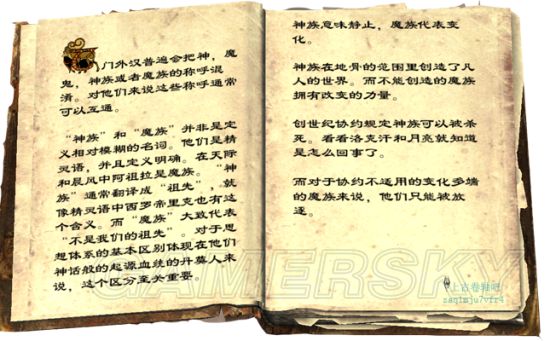 门外汉普遍会把神，魔
鬼，神族或者魔族的称呼混
淆。对他们来说这些称呼通常
可以互通。
“神族”和“魔族”并非是定
义相对模糊的名词。他们是精
灵语，并且定义明确。在天际
和晨风中阿祖拉是魔族。“神
族”通常翻译成“祖先”，就
像精灵语中西罗帝里克也有这
个含义。而“魔族”大致代表
“不是我们的祖先”。对于思
想体系的基本区别体现在他们
神话般的起源血统的丹莫人来
说，这个区分至关重要。
神族意味静止，魔族代表变
化。
神族在地骨的范围里创造了凡
人的世界。而不能创造的魔族
拥有改变的力量。
创世纪协约规定神族可以被杀
死。看看洛克汗和月亮就知道
是怎么回事了。
而对于协约不适用的变化多端
的魔族来说，他们只能被放
逐。
GAMERSKY
上古卷轴吧
zaq1mju7vfr4